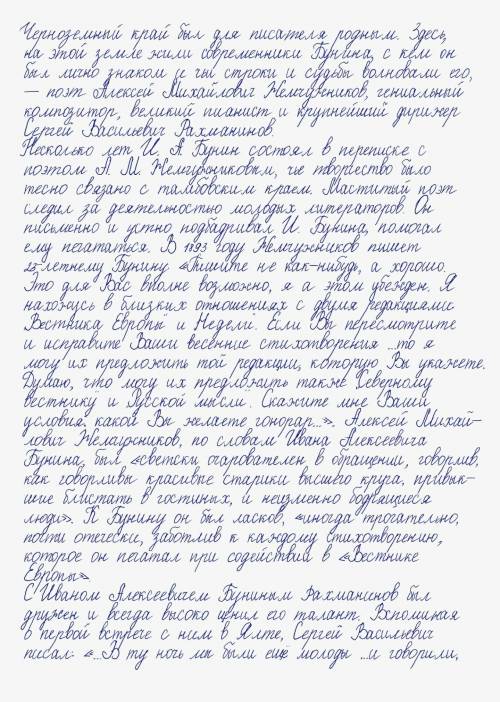 Черноземный край был для писателя родным. Здесь,
на этой земле жили современники Бунина, с кем он
был лично знаком и чьи строки и судьбы волновали его,
— поэт Алексей Михайлович Жемчужников, гениальный
композитор, великий пианист и крупнейший дирижер
Сергей Васильевич Рахманинов.
Несколько лет И. А. Бунин состоял в переписке с
поэтом А. М. Жемчужниковым, чье творчество было
тесно связано с тамбовским краем. Маститый поэт
следил за деятельностью молодых литераторов. Он
письменно и устно подбадривал И. Бунина, помогал
ему печататься. В 1893 году Жемчужников пишет
22-летнему Бунину «Пишите не как-нибудь, а хорошо.
Это для Вас вполне возможно, я в этом убежден. Я
нахожусь в близких отношениях с двумя редакциями:
Вестника Европы и Недели. Если Вы пересмотрите
и исправите Ваши весенние стихотворения ...то я
могу их предложить той редакции, которую Вы укажете.
Думаю, что могу их предложить также Северному
вестнику и Русской мысли. Скажите мне Ваши
условия, какой Вы желаете гонорар...». Алексей Михай-
лович Жемчужников, по словам Ивана Алексеевича
Бунина, был «светски очарователен в обращении, говорлив,
как говорливы красивые старики высшего круга, привык-
шие блистать в гостиных, и неизменно бодрящиеся
люди». К Бунину он был ласков, «иногда трогательно,
почти отечески, заботлив к каждому стихотворению,
которое он печатал при содействии в «Вестнике
Европы»
С Иваном Алексеевичем Буниным Рахманинов был
дружен и всегда высоко ценил его талант. Вспоминая
о первой встрече с ним в Ялте, Сергей Васильевич
писал: «...В ту ночь мы были ещё молоды ...и говорили,